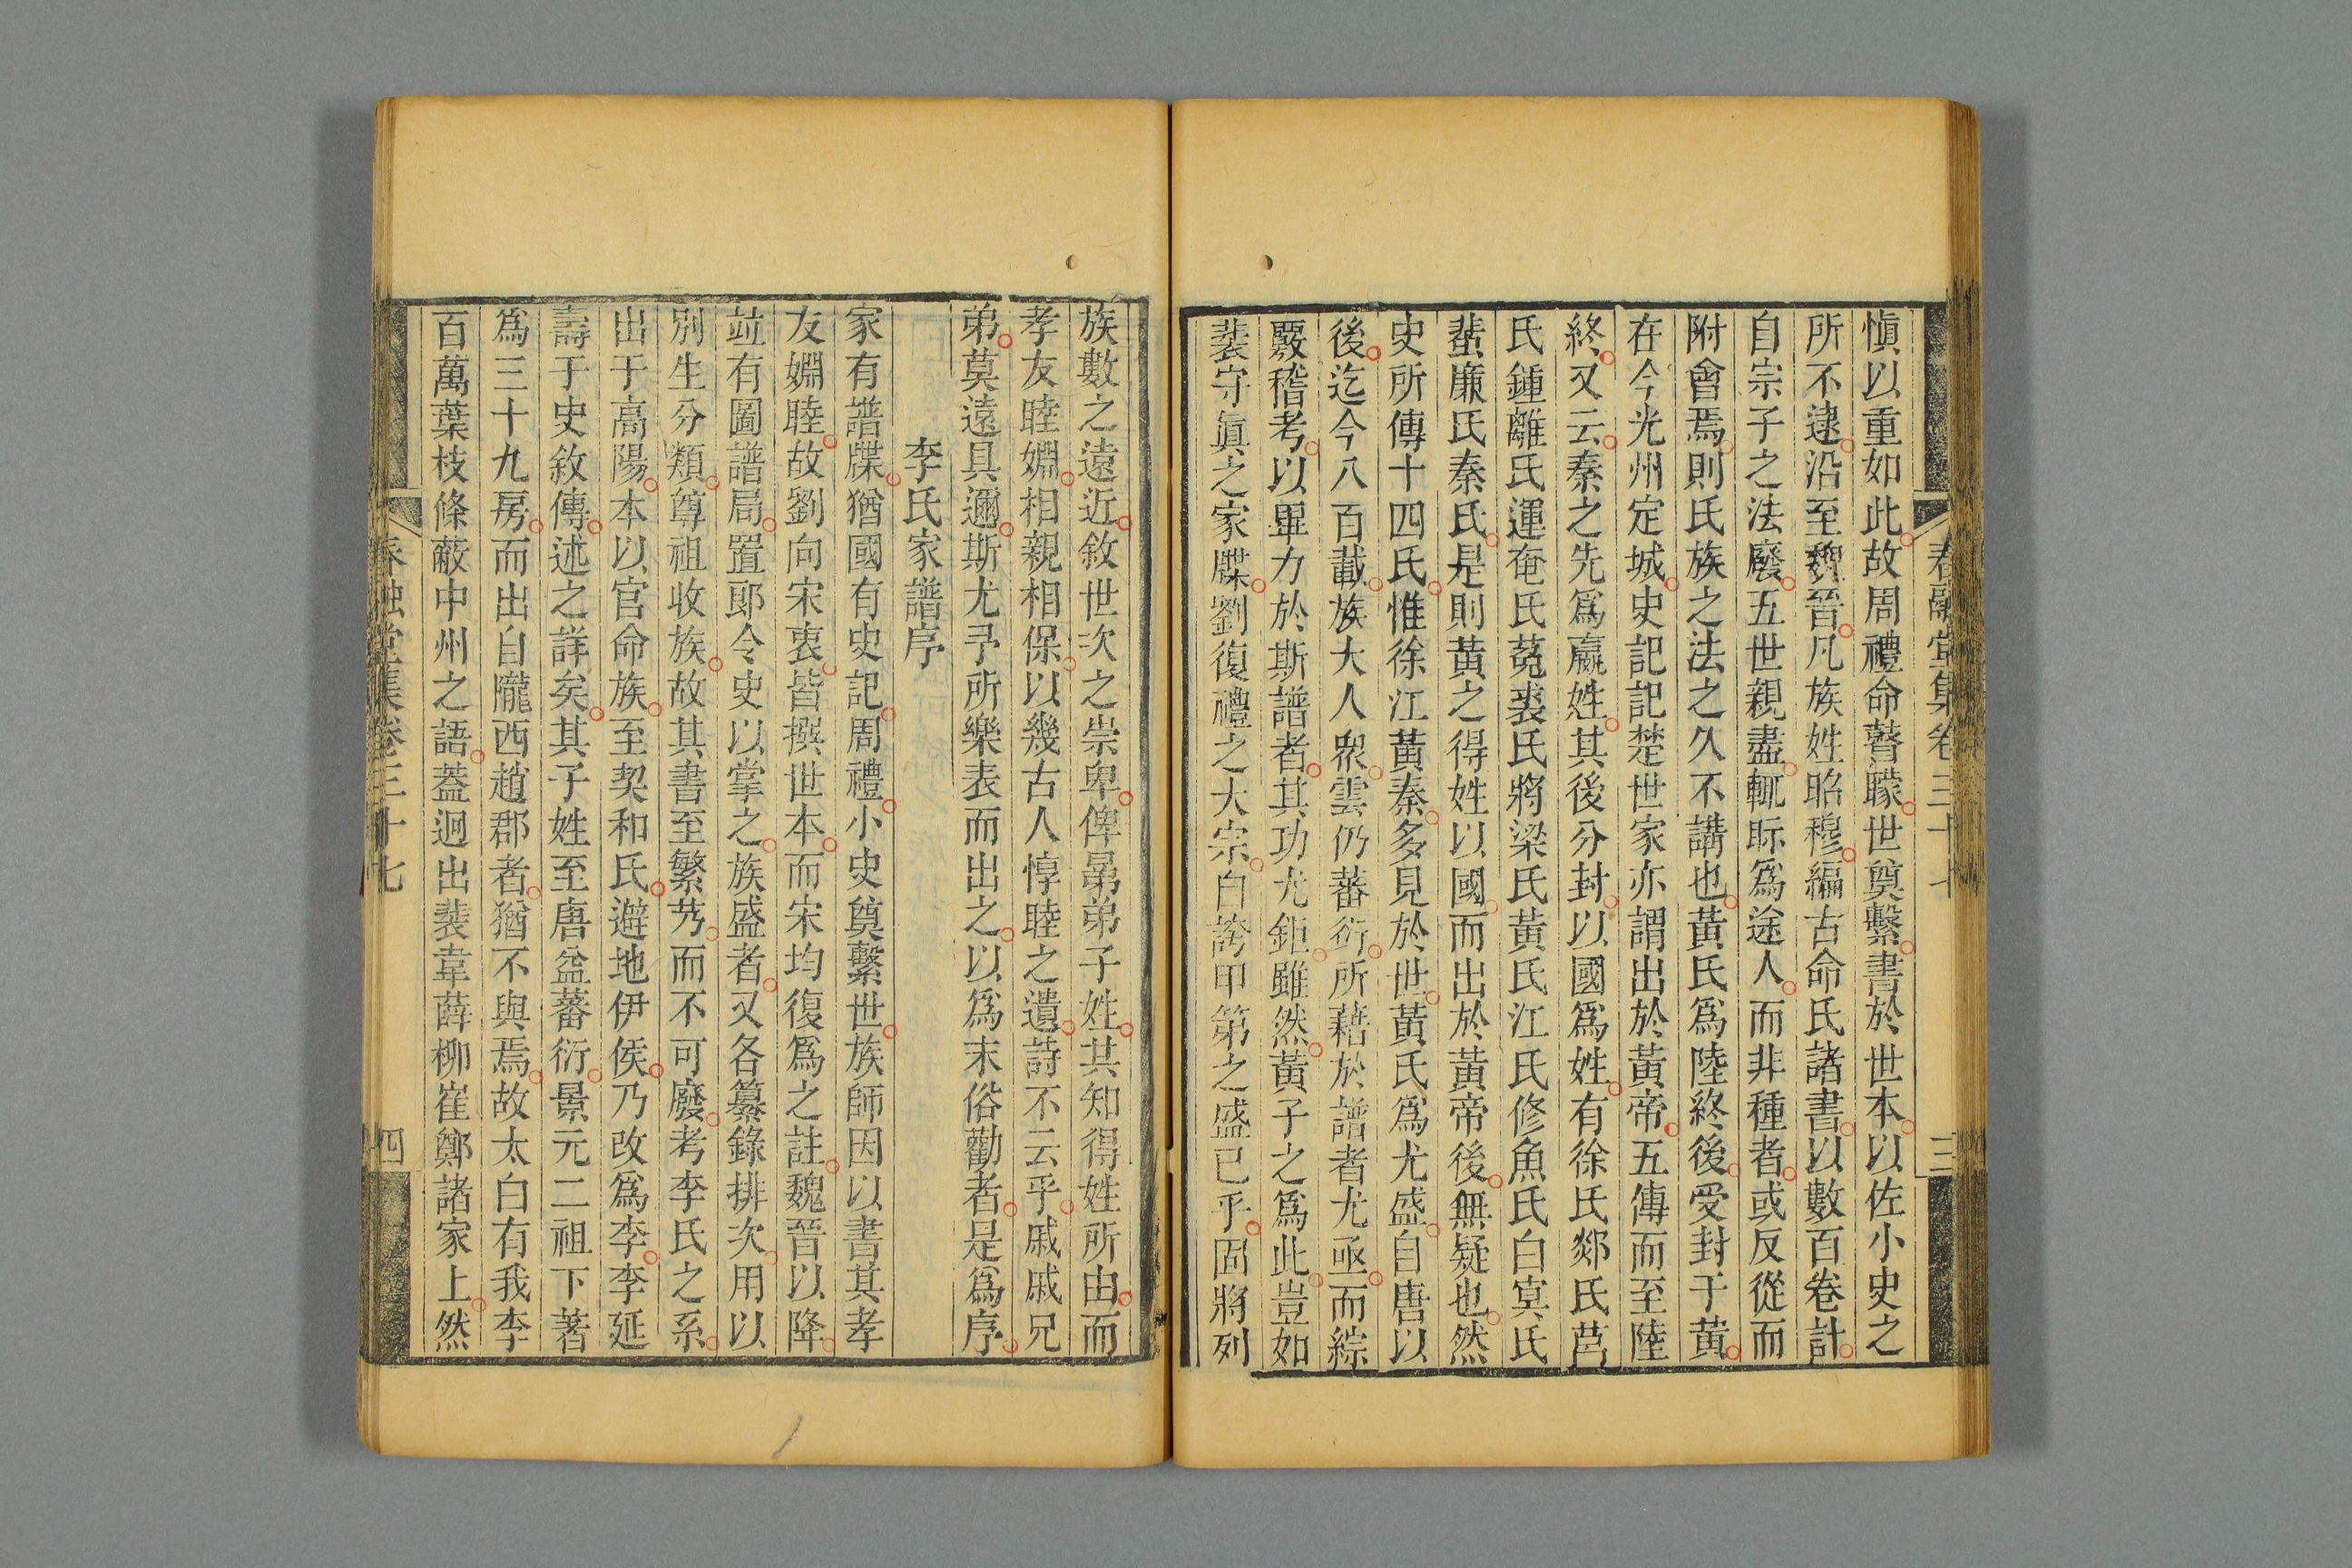 春融堂集卷三十七 三
愼以重如此故周禮命瞽矇世奠繫書於世本以佐小史之
所不逮沿至魏晉凡族姓昭穆編古命氏諸書以數百卷計
自宗子之法廢五世親盡輒眎爲途人而非種者或反從而
附會焉則氏族之法之久不講也黃氏爲陸終後受封于黃
在今光州定城史記記楚世家亦謂出於黃帝五傳而至陸
終又云秦之先爲嬴姓其後分封以國爲姓有徐氏郯氏莒
氏鍾離氏運奄氏菟裘氏將梁氏黃氏江氏修魚氏白冥氏
蜚廉氏秦氏是則黃之得姓以國而出於黃帝後無疑也然
史所傳十四氏惟徐江黃秦多見於世黃氏爲尤盛自唐以
後迄今八百載族大人衆雲仍蕃衍所藉於譜者尤亟而綜
覈稽考以畢力於斯譜者其功尤鉅雖然黃子之爲此豈如
裴守眞之家牒劉復禮之大宗白誇甲第之盛已乎固將列
族數之遠近敘世次之崇卑俾晜弟子姓其知得姓所由而
孝友睦婣相親相保以幾古人惇睦之遺詩不云乎戚戚兄
弟莫遠具邇斯尤予所樂表而出之以爲末俗勸者是爲序
李氏家譜序
家有譜牒猶國有史記周禮小史奠繫世族師因以書其孝
友婣睦故劉向宋衷皆撰世本而宋均復爲之註魏晉以降
竝有圖譜局置郞令史以掌之族盛者又各纂錄排次用以
別生分類尊祖收族故其書至繁艿而不可廢考李氏之系
出于高陽本以官命族至契和氏避地伊侯乃改爲李李延
壽于史敘傳述之詳矣其子姓至唐益蕃衍景元二祖下著
爲三十九房而出自隴西趙郡者猶不與焉故太白有我李
百萬葉枝條蔽中州之語葢迥出裴韋薛柳崔鄭諸家上然
春融堂集卷三十七 四